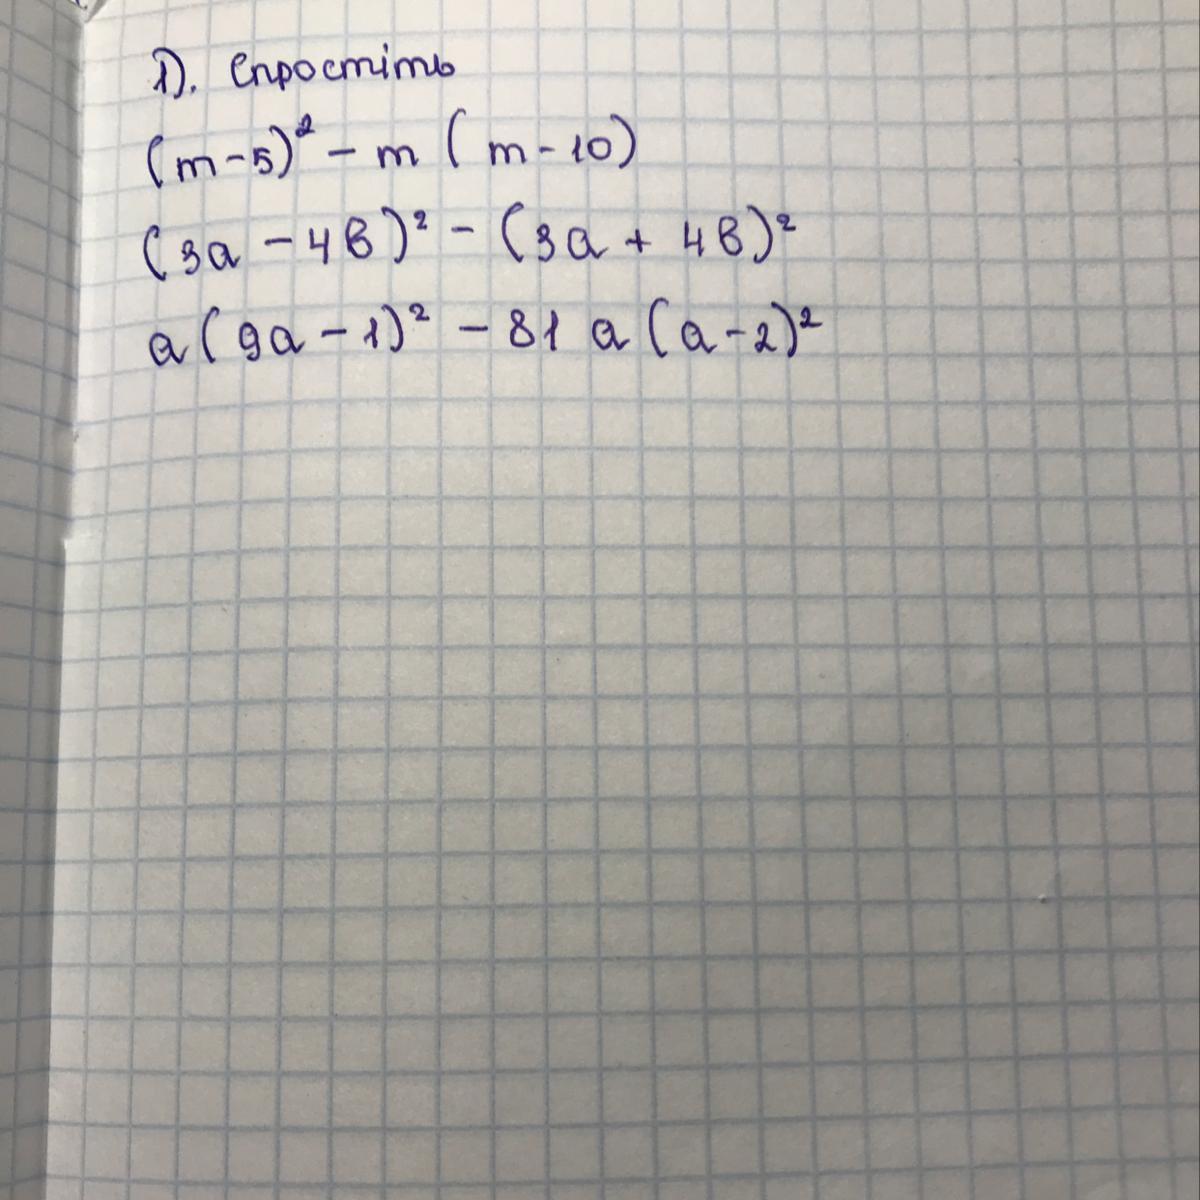 1). Спростіть
(m-5)² - m (m-10)
(3a - 4b)² - (3a + 4b)²
a(9a - 1)² - 81 a (a-2)²